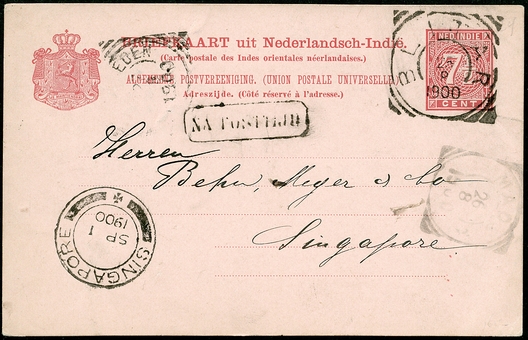 BRIEFKAART uit Nederlandsch-Indië.
(Carte postale des Indes orientales néerlandaises.)
ALGEMEENE POSTVEREENIGING. (UNION POSTALE UNIVERSELLE.)
Adreszijde. (Côté réservé à l'adresse.)
NED. INDIE
7½
CENT
1900
NA POSTTIJD
Herren
Behn, Meyer & Co
Singapore
SINGAPORE
SP 1
1900